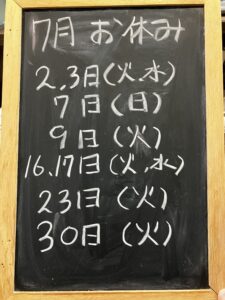 7月 お休み
2,3日(火,水)
7日(日)
9日(火)
16,17日(火,水)
23日(火)
30日(火)